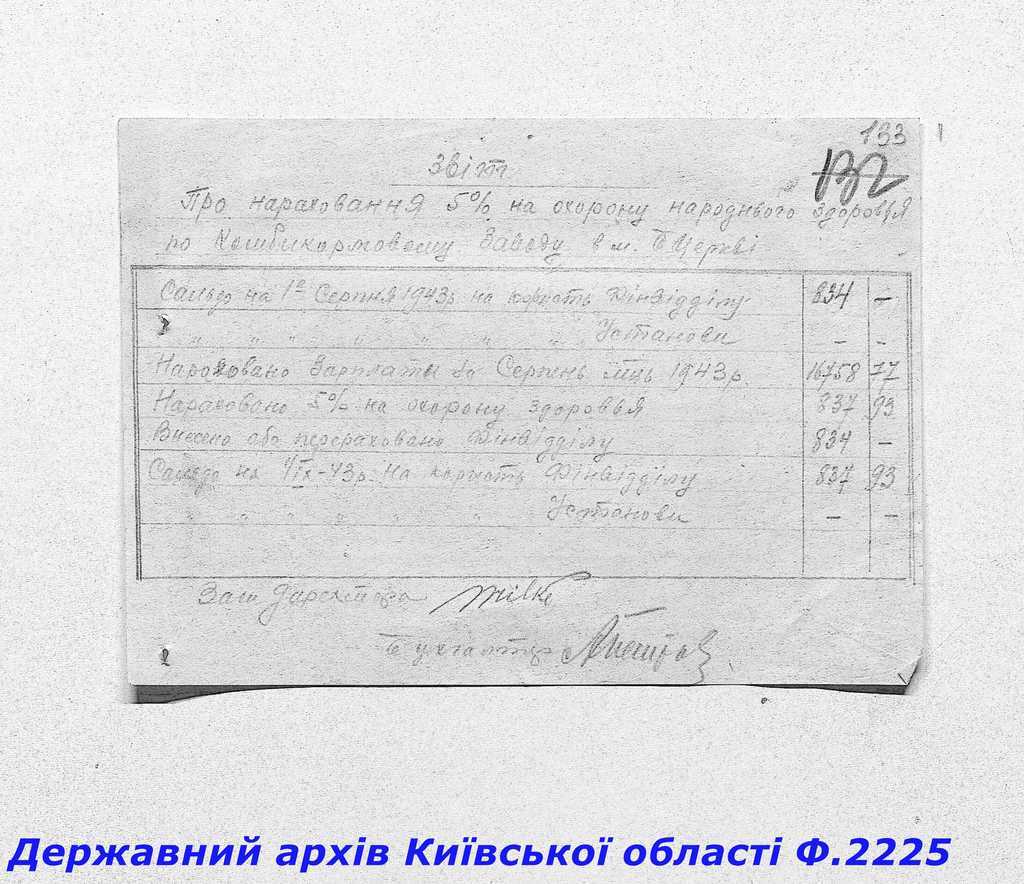 133
132
Звіт
Про нараховання 5% на охорону народнього здоровья
по Комбикормовому Заводу в м. БЦеркві
Сальдо на 1е Серпня 1943р. на користь Фінвідділу 834 —
" " " " " " " Установи — —
Нараховано Зарплати за Серпень м-ць 1943р. 16758 77
Нараховано 5% на охорону здоровья 837 93
Внесено або перераховано Фінвідділу 834 —
Сальдо на 1/IX-43р. на користь Фінвідділу 837 93
" " " " " " " Установи — —
Зам Директора
Бухгалтер
Державний архів Київської області Ф.2225